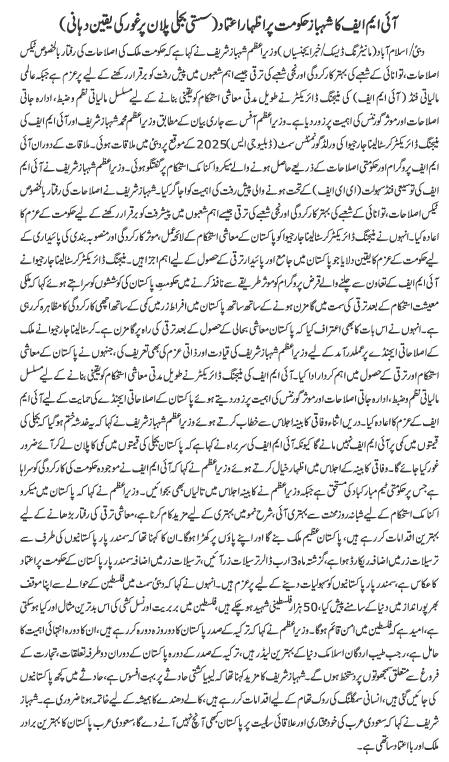 آئی ایم ایف کا شہباز حکومت پر اظہار اعتماد (سستی بجلی پلان پر غور کی یقین دہانی)
دبئی/ اسلام آباد (مانیٹرنگ ڈیسک/ خبر ایجنسیاں) وزیراعظم شہباز شریف نے کہا ہے کہ حکومت ملک کی اصلاحات کی رفتار بالخصوص ٹیکس
اصلاحات، توانائی کے شعبے کی بہتر کارکردگی اور نجی شعبے کی ترقی جیسے اہم شعبوں میں پیش رفت کو برقرار رکھنے کے لیے پرعزم ہے جبکہ عالمی
مالیاتی فنڈ (آئی ایم ایف) کی منیجنگ ڈائریکٹر نے طویل مدتی معاشی استحکام کو یقینی بنانے کے لیے مسلسل مالیاتی نظم و ضبط، ادارہ جاتی
اصلاحات اور موثر گورننس کی اہمیت پر زور دیا ہے۔ وزیراعظم آفس سے جاری بیان کے مطابق وزیراعظم محمد شہباز شریف اور آئی ایم ایف کی
منیجنگ ڈائریکٹر کرسٹالینا جارجیوا کی ورلڈ گورنمنٹس سمٹ (ڈبلیو جی ایس) 2025 کے موقع پر دبئی میں ملاقات ہوئی۔ ملاقات کے دوران آئی
ایم ایف پروگرام اور حکومتی اصلاحات کے ذریعے حاصل ہونے والے میکرو اکنامک استحکام پر گفتگو ہوئی۔ وزیراعظم شہباز شریف نے آئی ایم
ایف کی توسیعی فنڈ سہولت (ای ای ایف) کے تحت ہونے والی پیش رفت کی اہمیت کو اجاگر کیا۔ شہباز شریف نے اصلاحات کی رفتار بالخصوص
ٹیکس اصلاحات، توانائی کے شعبے کی بہتر کارکردگی اور نجی شعبے کی ترقی جیسے اہم شعبوں میں پیشرفت کو برقرار رکھنے کے لیے حکومت کے عزم کا
اعادہ کیا۔ انہوں نے منیجنگ ڈائریکٹر کرسٹالینا جارجیوا کو پاکستان کے معاشی استحکام کے لائحہ عمل، موثر کارکردگی اور منصوبہ بندی کی پائیداری کے
لیے حکومت کے عزم کا یقین دلایا جو پاکستان میں جامع اور پائیدار ترقی کے حصول کے لیے اہم اجزا ہیں۔ منیجنگ ڈائریکٹر کرسٹالینا جارجیوا نے
آئی ایم ایف کے تعاون سے چلنے والے قرض پروگرام کو موثر طریقے سے نافذ کرنے میں حکومت پاکستان کی کوششوں کو سراہتے ہوئے کہا کہ ملکی
معیشت استحکام کے بعد ترقی کی سمت میں گامزن ہونے کے ساتھ ساتھ پاکستان میں افراط زر میں کمی کے ساتھ اچھی کارکردگی کا مظاہرہ کر رہی
ہے۔ انہوں نے اس بات کا بھی اعتراف کیا کہ پاکستان معاشی بحالی کے حصول کے بعد ترقی کی راہ پر گامزن ہے۔ کرسٹالینا جارجیوا نے ملک
کے اصلاحاتی ایجنڈے پر عملدرآمد کے لیے وزیراعظم شہباز شریف کی قیادت اور ذاتی عزم کی بھی تعریف کی، جنہوں نے پاکستان کے معاشی
استحکام اور ترقی کے حصول میں اہم کردار ادا کیا۔ آئی ایم ایف کی منیجنگ ڈائریکٹر نے طویل مدتی معاشی استحکام کو یقینی بنانے کے لیے مسلسل
مالیاتی نظم و ضبط، ادارہ جاتی اصلاحات اور موثر گورننس کی اہمیت پر زور دیتے ہوئے پاکستان کے اصلاحاتی ایجنڈے کی حمایت کے لیے آئی ایم
ایف کے عزم کا اعادہ کیا۔ دریں اثنا وفاقی کابینہ کے اجلاس سے خطاب کرتے ہوئے وزیراعظم نے کہا کہ یہ خدشہ ختم ہو گیا کہ بجلی کی
قیمتوں میں کمی پر آئی ایم ایف نہیں مانے گا کیونکہ آئی ایم ایف کی سربراہ نے کہا ہے کہ پاکستان بجلی کی قیمتوں میں کمی کا پلان لے کر آئے ضرور
غور کیا جائے گا۔ وفاقی کابینہ کے اجلاس میں اظہار خیال کرتے ہوئے وزیراعظم نے کہا کہ آئی ایم ایف نے موجودہ حکومت کی کارکردگی کو سراہا
ہے جس پر حکومتی ٹیم مبارکباد کی مستحق ہے جبکہ وزیراعظم نے کابینہ اجلاس میں تالیاں بھی بجوائیں۔ وزیراعظم نے کہا کہ پاکستان میں میکرو
اکنامک استحکام کے لیے شبانہ روز محنت سے بہتری آئی، شرح نمو میں بہتری کے لیے مزید کام کرنا ہے، معاشی ترقی کی رفتار بڑھانے کے لیے
بہترین اقدامات کر رہے ہیں، پاکستان عظیم ملک بنے گا اور اپنے پاؤں پر کھڑا ہوگا۔ ان کا کہنا تھا کہ سمندر پار پاکستانیوں کی طرف سے
ترسیلات زر میں اضافہ ریکارڈ ہوا ہے، گزشتہ ماہ 3 ارب ڈالر ترسیلات زر آئیں، ترسیلات زر میں اضافہ سمندر پار پاکستان کے حکومت پر اعتماد
کا عکاس ہے، سمندر پار پاکستانیوں کو سہولیات دینے کے لیے پرعزم ہیں۔ انہوں نے کہا کہ دبئی سمٹ میں فلسطین کے حوالے سے اپنا موقف
بھرپور انداز میں دنیا کے سامنے پیش کیا، 50 ہزار فلسطینی شہید ہو چکے ہیں، فلسطین میں بربریت اور نسل کشی کی اس بدترین مثال اور کیا ہو سکتی
ہے، امید ہے کہ فلسطین میں امن قائم ہوگا۔ وزیراعظم نے کہا کہ ترکیہ کے صدر پاکستان کا دو روزہ دورہ کر رہے ہیں، ان کا دورہ انتہائی اہمیت کا
حامل ہے، رجب طیب اردگان اسلامک دنیا کے بہترین لیڈر ہیں، ترکیہ کے صدر کے دورہ پاکستان کے دوران دو طرفہ تعلقات، تجارت کے
فروغ سے متعلق سمجھوتوں پر دستخط ہوں گے۔ شہباز شریف نے کہا کہ لیبیا کشتی حادثے پر بہت افسوس ہے، حادثے میں کچھ پاکستانیوں
کی جانیں گئی ہیں، انسانی سمگلنگ کی روک تھام کے لیے اقدامات کر رہے ہیں، کالے دھندے کا ہمیشہ کے لیے خاتمہ ہونا ضروری ہے۔ شہباز
شریف نے کہا کہ سعودی عرب کی خودمختاری اور علاقائی سالمیت پر پاکستان کبھی آنچ نہیں آنے دے گا، سعودی عرب پاکستان کا بہترین برادر
ملک اور بااعتماد ساتھی ہے۔